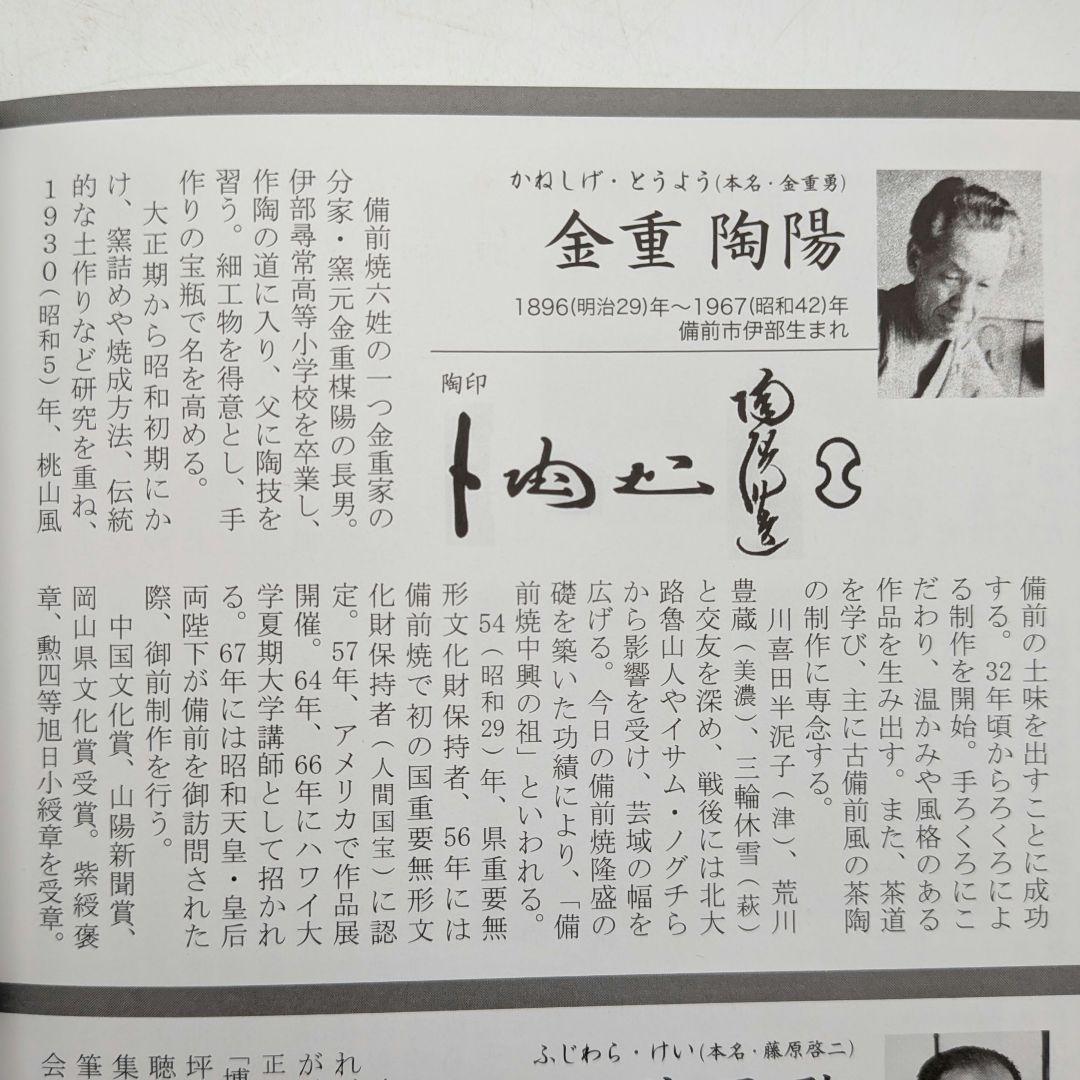 かねしげ・とうよう(本名・金重勇)
金重 陶陽
1896(明治29)年～1967(昭和42)年
備前市伊部生まれ
陶印
備前焼六姓の一つ金重家の
分家・窯元金重楳陽の長男。
伊部尋常高等小学校を卒業し、
作陶の道に入り、父に陶技を
習う。細工物を得意とし、手
作りの宝瓶で名を高める。
大正期から昭和初期にか
け、窯詰めや焼成方法、伝統
的な土作りなど研究を重ね、
1930(昭和5)年、桃山風
備前の土味を出すことに成功
する。32年頃からろくろによ
る制作を開始。手ろくろにこ
だわり、温かみや風格のある
作品を生み出す。また、茶道
を学び、主に古備前風の茶陶
の制作に専念する。
川喜田半泥子(津)、荒川
豊蔵(美濃)、三輪休雪(萩)
と交友を深め、戦後には北大
路魯山人やイサム・ノグチら
から影響を受け、芸域の幅を
広げる。今日の備前焼隆盛の
礎を築いた功績により、「備
前焼中興の祖」といわれる。
54(昭和29)年、県重要無
形文化財保持者、56年には
備前焼で初の国重要無形文
化財保持者(人間国宝)に認
定。57年、アメリカで作品展
開催。64年、66年にハワイ大
学夏期大学講師として招かれ
る。67年には昭和天皇・皇后
両陛下が備前を御訪問された
際、御前制作を行う。
中国文化賞、山陽新聞賞、
岡山県文化賞受賞。紫綬褒
章、勲四等旭日小綬章を受章。
ふじわら・けい(本名・藤原啓二)
れ
が
正
「博
坪
聴
集
筆
会